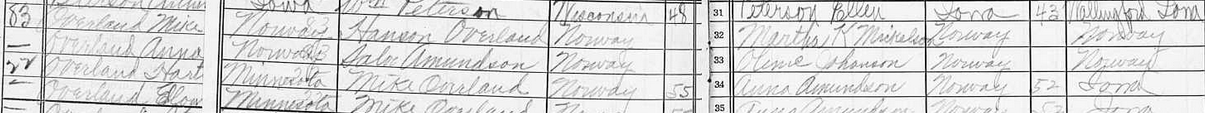 Iowa Peterson Wisconsin 48 31 Peterson Ellen Iowa 43 Wallingford Iowa
83 Overland Mike Norway 83 Hanson Overland Norway 32 Martha K Mickelson Norway Norway
— Overland Anna Norway 83 Salve Amundson Norway 33 Olene Johanson Norway Norway
Overland Minnesota Mike Overland Norway 55 34 Anna Amundson Norway 52 Iowa
— Overland Minnesota Mike Overland 35 Anna Amundson Norway 52 Iowa